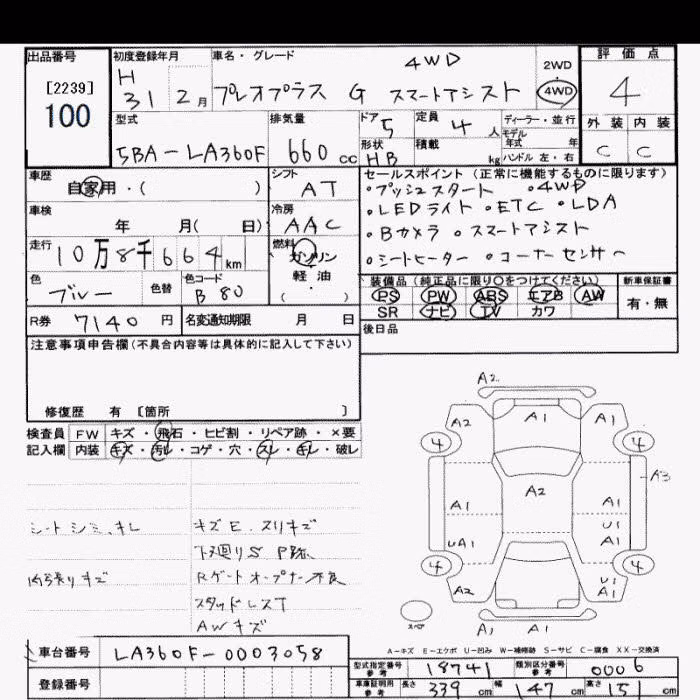 出品番号
[2239]
100
初度登録年月
H
31 2月
車名・グレード
4WD
プレオプラス G スマートアシスト
2WD
4WD
評価点
4
外装 内装
C C
型式
5BA-LA360F
排気量
660 cc
ドア 5
形状 HB
定員 4 人
積載 kg
ディーラー・並行
モデル
年式 年
ハンドル 左・右
車歴
自家用・( )
シフト
AT
車検
年 月( 日)
冷房
AAC
走行
10万8千664km
燃料
ガソリン
軽・油
( )
色
ブルー
色替
色コード
B80
R券 7140 円
名変通知期限 月 日
セールスポイント (正常に機能するものに限ります)
・プッシュスタート ・4WD
・LEDライト ・ETC ・LDA
・Bカメラ ・スマートアシスト
・シートヒーター ・コーナーセンサー
装備品 (純正品に限り○をつけてください)
PS PW ABS エアB AW
SR ナビ TV カワ
新車保証書
有・無
後日品
注意事項申告欄(不具合内容等は具体的に記入して下さい)
修復歴 有 [箇所 ]
検査員 FW キズ・飛石・ヒビ割・リペア跡・×要
記入欄 内装 キズ・汚レ・コゲ・穴・スレ・キレ・破レ
シートシミ、キレ
内張りキズ
キズE、スリキズ
下廻りS P跡
Rゲートオープナー不良
スタッドレスT
AWキズ
A2
A2 A1 A1
4 4
A3
A2
A1 A1
U1
UA1 A1
4 4
A2 U1
A1
A1 A1
スペア
A-キズ E-エクボ U-凹み W-補修跡 S-サビ C-腐食 XX-交換済
車台番号 LA360F-0003058
登録番号
型式指定番号
参考
18741
類別区分番号
参考
0006
車庫証明用
参考
長さ 339 cm 幅 147 cm 高さ 151 cm